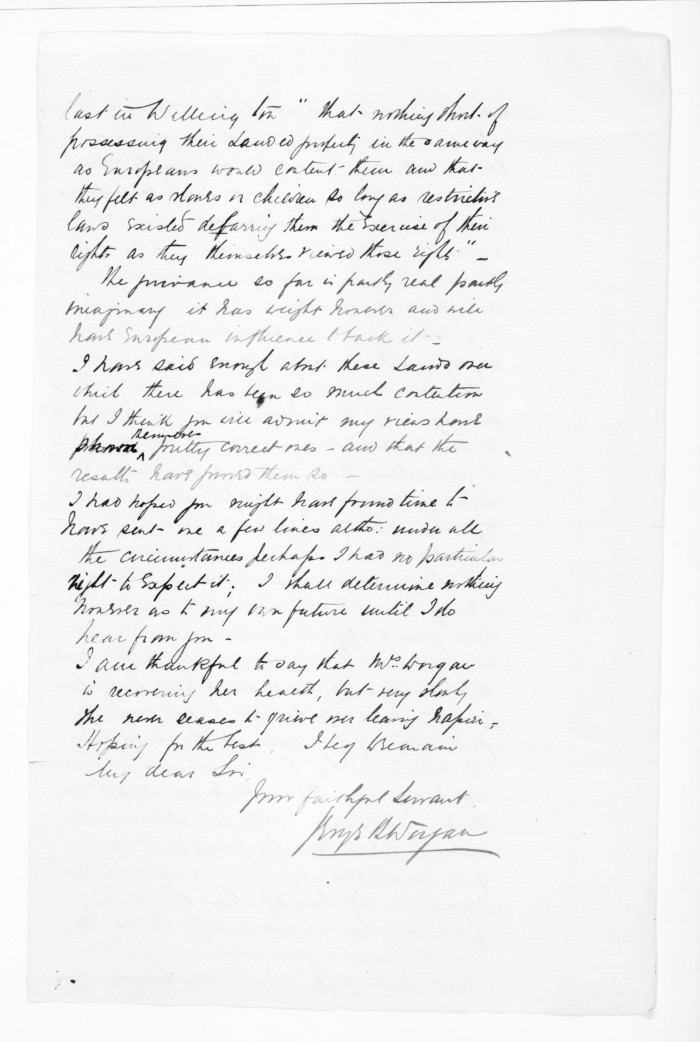 last in Wellington "that nothing short of
possessing their Landed property in the same way
as Europeans would content them and that
they felt as slaves or children so long as restrictive
laws existed debarring them the Exercise of their
rights as they themselves viewed those rights." –
The grievance so far is partly real partly
imaginary it has weight however and will
have European influence to back it –
I have said enough about these Lands over
which there has been so much contention
but I think you will admit my views have
themselves
pretty correct ones – and that the
results have proved them so –
I had hoped you might have found time to
have sent me a few lines altho: under all
the circumstances perhaps I had no particular
right to Expect it; I shall determine nothing
however as to my own future until I do
hear from you –
I am thankful to say that Mrs. Worgan
is recovering her health, but very slowly
She never ceases to grieve over leaving Napier –
Hoping for the best, I beg to remain
My dear Sir,
Your faithful Servant,
Worgan